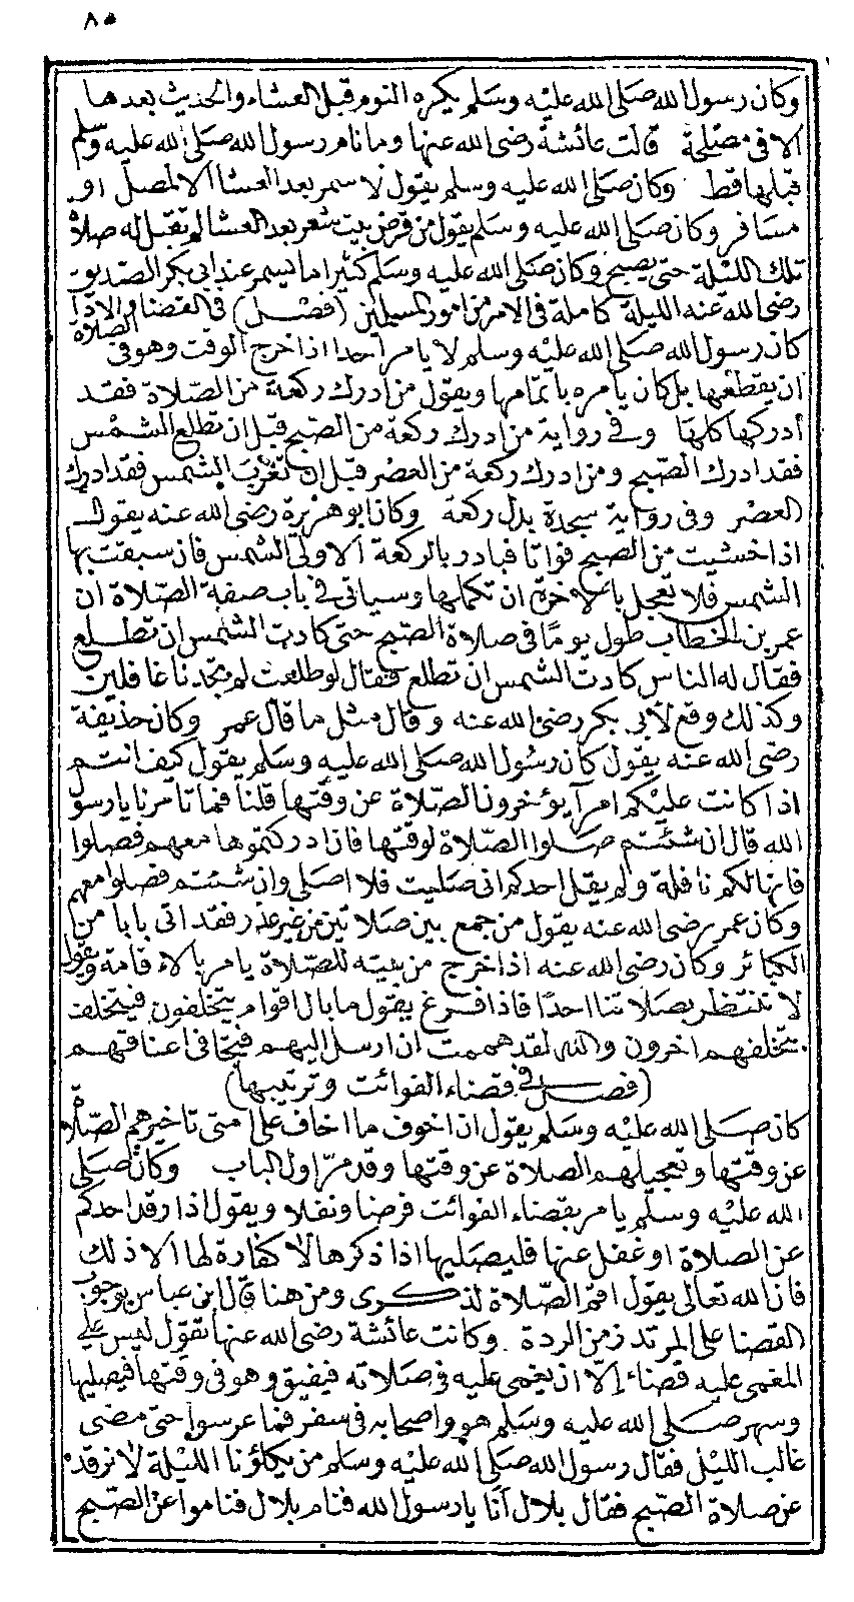 ٨٥
وكان رسول الله صلى الله عليه وسلم يكره النوم قبل العشاء والحديث بعدها
الا في مصلحة قالت عائشة رضى الله عنها وما نام رسول الله صلى الله عليه وسلم
قبلها قط وكان صلى الله عليه وسلم يقول لا سمر بعد العشا الا لمصل او
مسافر وكان صلى الله عليه وسلم يقول من قرض بيت شعر بعد العشا لم تقبل له صلاة
تلك الليلة حتى يصبح وكان صلى الله عليه وسلم كثيرا ما يسمر عند ابى بكر الصديق
رضى الله عنه الليلة كاملة في الامر من امور المسلمين (فصل) في القضا والاذا
كان رسول الله صلى الله عليه وسلم لا يامر احدا اذا خرج الوقت وهو في الصلاة
ان يقطعها بل كان يامره باتمامها ويقول من ادرك ركعة من الصلاة فقد
أدركها كلها وفي رواية من ادرك ركعة من الصبح قبل ان تطلع الشمس
فقد ادرك الصبح ومن ادرك ركعة من العصر قبل ان تغرب الشمس فقد ادرك
العصر وفى رواية سجدة بدل ركعة وكان ابو هريرة رضى الله عنه يقول
اذا خشيت من الصبح فواتا فبادر بالركعة الاولى الشمس فان سبقت بها
الشمس فلا تعجل بالاخرة ان تكملها وسياتى في باب صفة الصلاة ان
عمر بن الخطاب طول يوما في صلاة الصبح حتى كادت الشمس ان تطلع
فقال له الناس كادت الشمس ان تطلع فقال لو طلعت لم تجدنا غافلين
وكذلك وقع لأبى بكر رضى الله عنه وقال مثل ما قال عمر وكان حذيفة
رضى الله عنه يقول كان رسول الله صلى الله عليه وسلم يقول كيف انتم
اذا كانت عليكم امرآ يؤخرون الصلاة عن وقتها قلنا فما تامرنا يا رسول
الله قال ان شئتم صلوا الصلاة لوقتها فان ادركتموها معهم فصلوا
فانها لكم نافلة ولم يقل احدكم انى صليت فلا اصلى وان شئتم فصلوا معهم
وكان عمر رضى الله عنه يقول من جمع بين صلاتين من غير عذر فقد اتى بابا من
الكبائر وكان رضى الله عنه اذا خرج من بيته للصلاة يامر بالاقامة ويقول
لا تنتظر بصلاتنا احدا فاذا فرغ يقول ما بال اقوام يتخلفون فيتخلف
بتخلفهم اخرون والله لقد هممت ان ارسل اليهم فيجا في اعناقهم
(فصل في قضاء الفوائت وترتيبها)
كان صلى الله عليه وسلم يقول ان اخوف ما اخاف على امتى تاخيرهم الصلاة
عن وقتها وتعجيلهم الصلاة عن وقتها وقد مر اول الباب وكان صلى
الله عليه وسلم يامر بقضاء الفوائت فرضا ونفلا ويقول اذا رقد احدكم
عن الصلاة او غفل عنها فليصليها اذا ذكرها لا كفارة لها الا ذلك
فان الله تعالى يقول اقم الصلاة لذكرى ومن هنا قال ابن عباس بوجوب
القضا على المرتد زمن الردة وكانت عائشة رضى الله عنها تقول ليس على
المغمى عليه قضاء إلا ان يغمى عليه في صلاته فيفيق وهو في وقتها فيصليها
وسهر صلى الله عليه وسلم هو واصحابه في سفر فما عرسوا حتى مضى
غالب الليل فقال رسول الله صلى الله عليه وسلم من يكلؤنا الليلة لا نرقد
عن صلاة الصبح فقال بلال أنا يا رسول الله فنام بلال فناموا عن الصبح